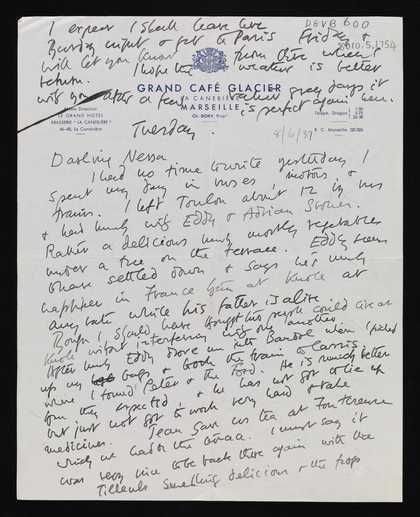 I expect I shall leave here
Thursday night & get to Paris Friday &
will let you know from there when I
return. I hope the weather is better
with you after a few rather grey days it
is perfect again here.
DGVB 600
8010.5.1754
GRAND CAFÉ GLACIER
LA CANEBIÈRE
MARSEILLE
Ch. BORY, Propr
Même Direction
LE GRAND HOTEL
BRASSERIE "LA CANEBIÈRE"
46-48, La Canebière
R. C. Marseille
Tuesday.
8/6/37
Darling Nessa
I had no time to write yesterday I
spent my day in buses, motors &
trains. I left Toulon about 12 by bus
& had lunch with Eddy & Adrian Stokes.
Rather a delicious lunch mostly vegetables
under a tree on the terrace. Eddy seems
to have settled down & says he's much
happier in France than at Knole at
any rate while his father is alive
Though I should have thought two people could live at
Knole without interfering with one another
After lunch Eddy drove me into Bandol when I picked
up my bags & took the train to Cassis
where I found Peter & the Ford. He is much better
than they expected & he has not got to lie up
but just not got to work very hard & take
medicines. Jean gave us tea at Fontcreuse
which we had on the terrace. I must say it
was very nice to be back there again with the
Tilleuls smelling delicious & the frogs